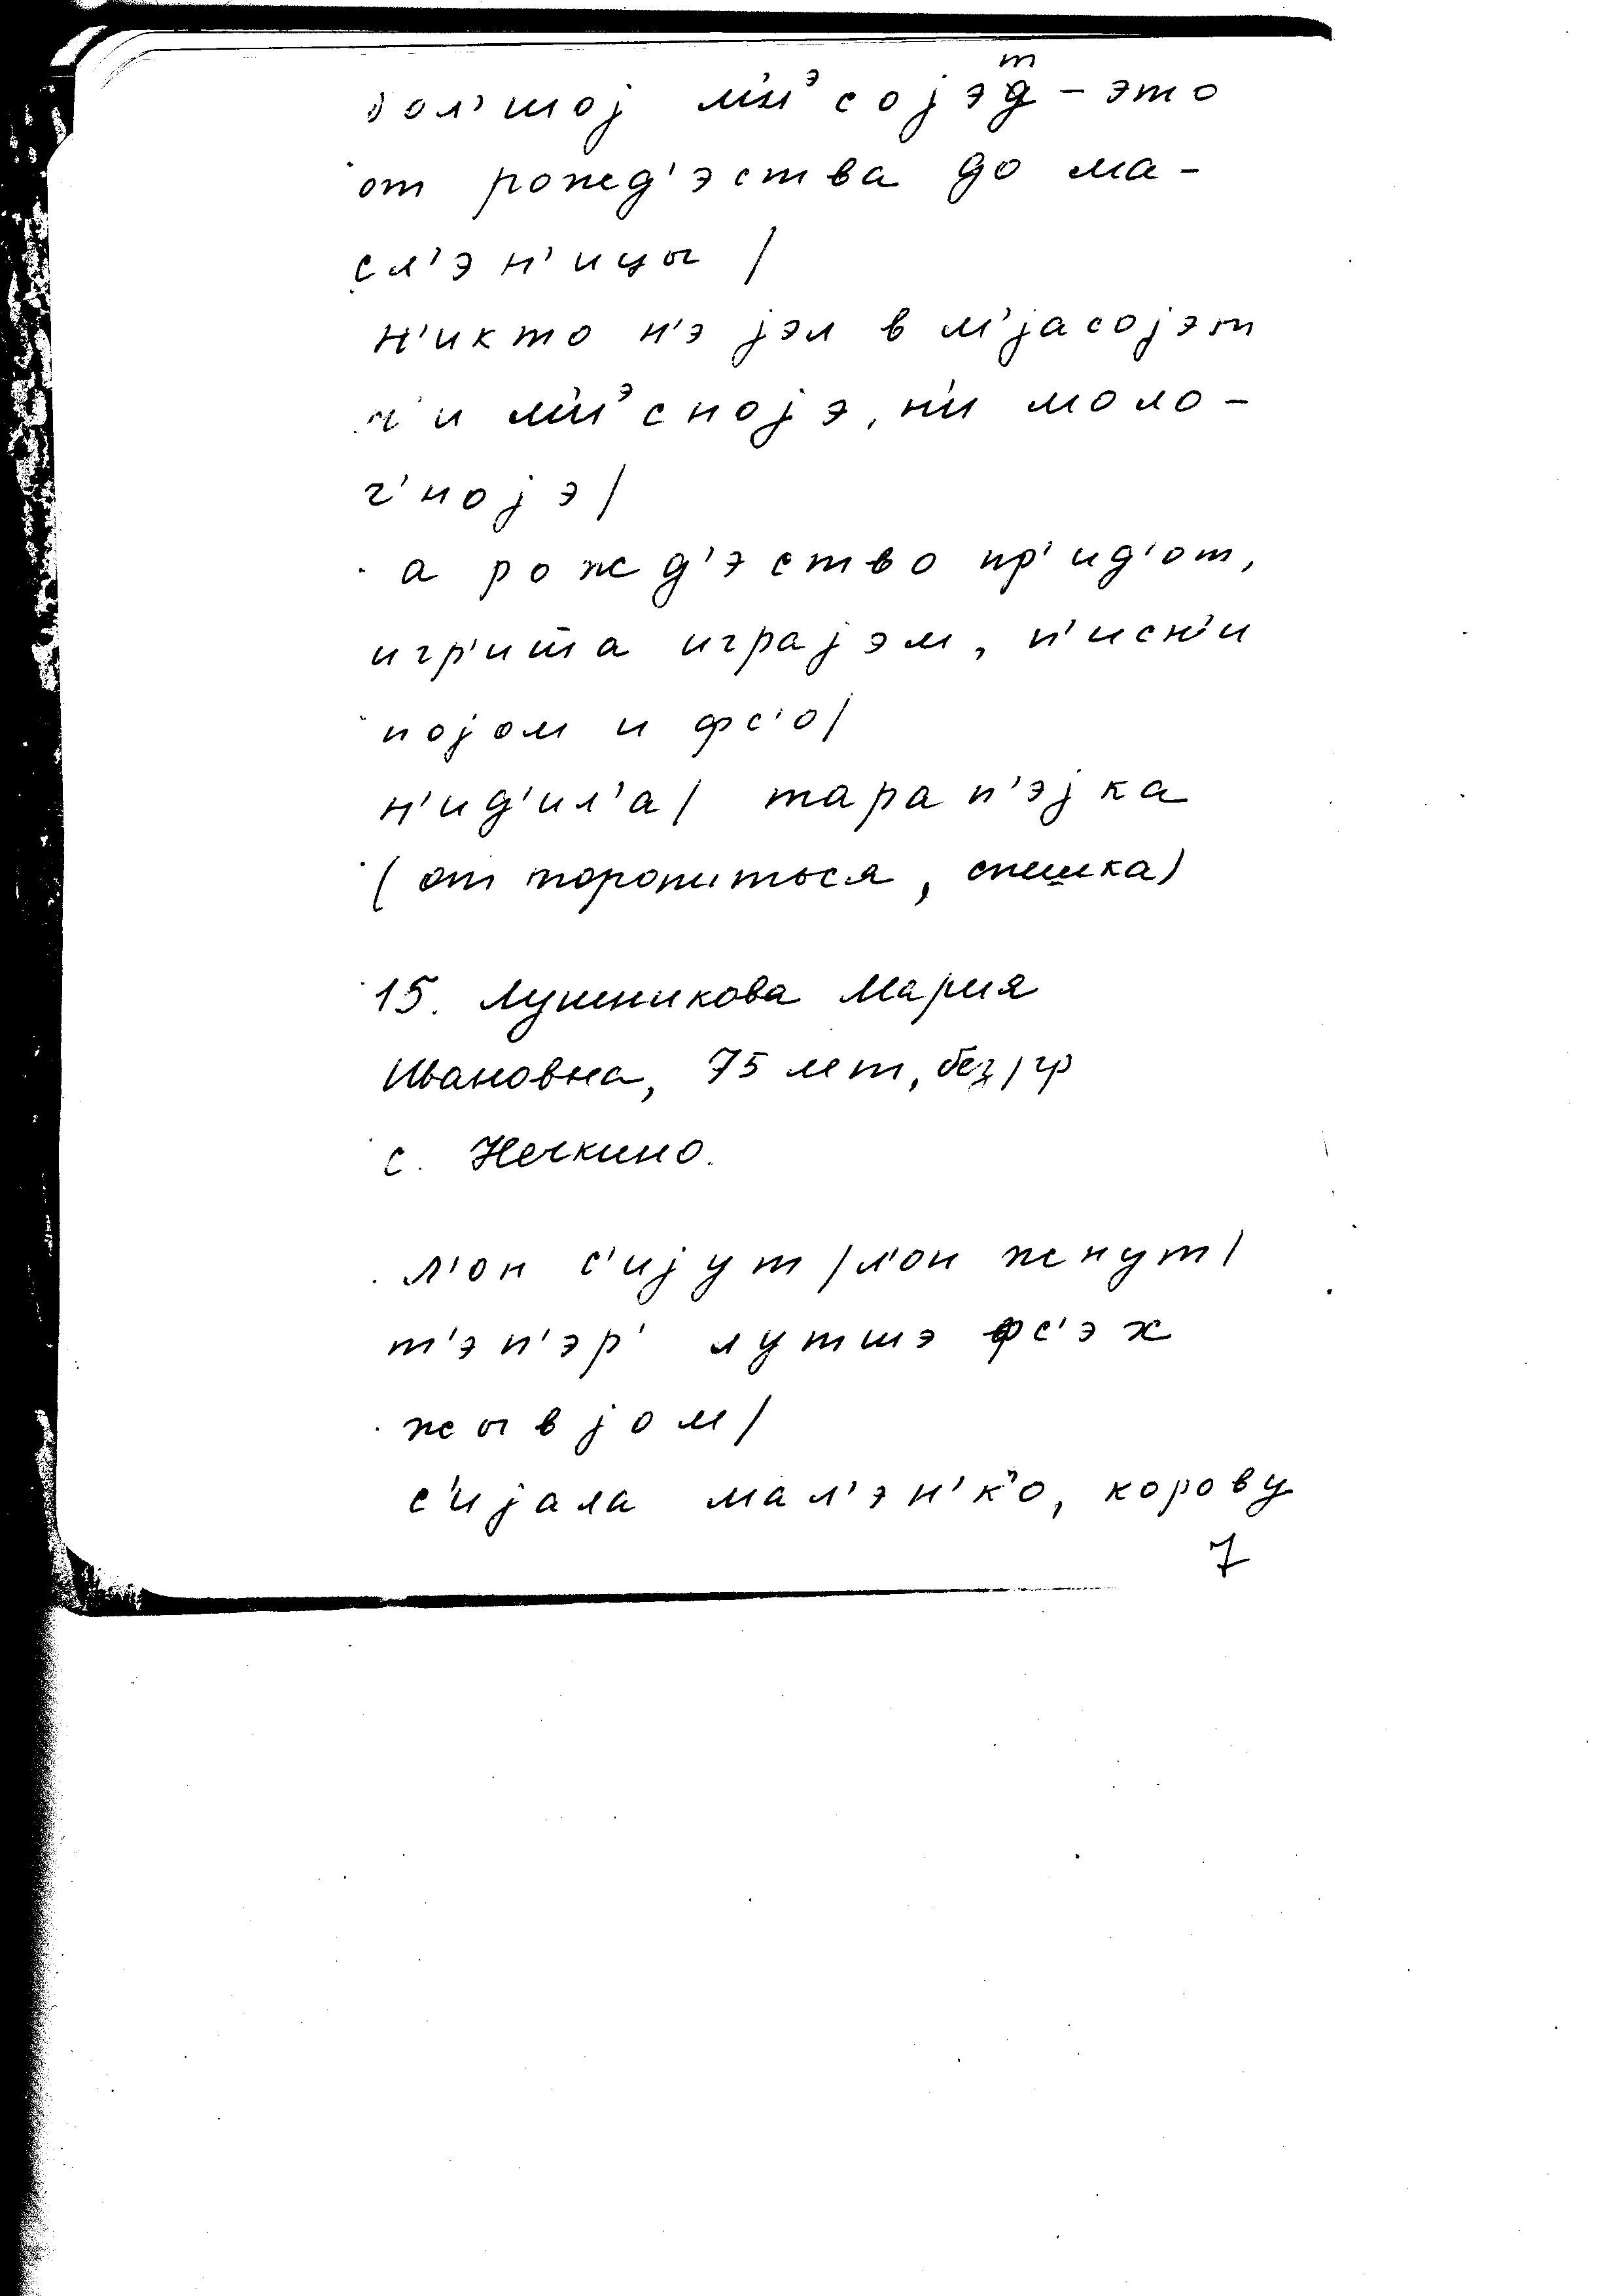 бол'шој м'иᵊсојэд͏ᵗ – это
от рожд'эства до ма-
сл'эн'ицы /
н'икто н'э јэл в м'јасојэт
н'и м'иᵊснојэ, н'и моло-
ч'нојэ /
а рожд'эство пр'ид'от,
игр'иш̅а играјэм, п'исн'и
појом и фс'о /
н'ид'ил'а / тарап'эјка
(от торопиться, спешка)
15. Лушникова Мария
Ивановна, 75 лет, без/гр
с. Нечкино.
л'он с'ијут / л'он жнут /
т'эп'эр' лутшэ фс'эх
жывјом /
с'ијала мал'эн'к'о, корову
7